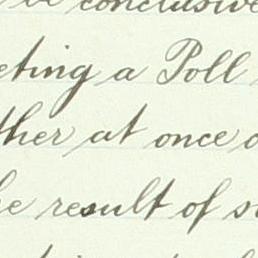 be conclusive
eting a Poll
ther at once
he result of